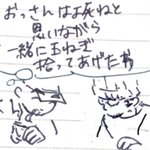 おっさんは死ねと
思いながら
一緒に玉ねぎ
拾ってあげたお